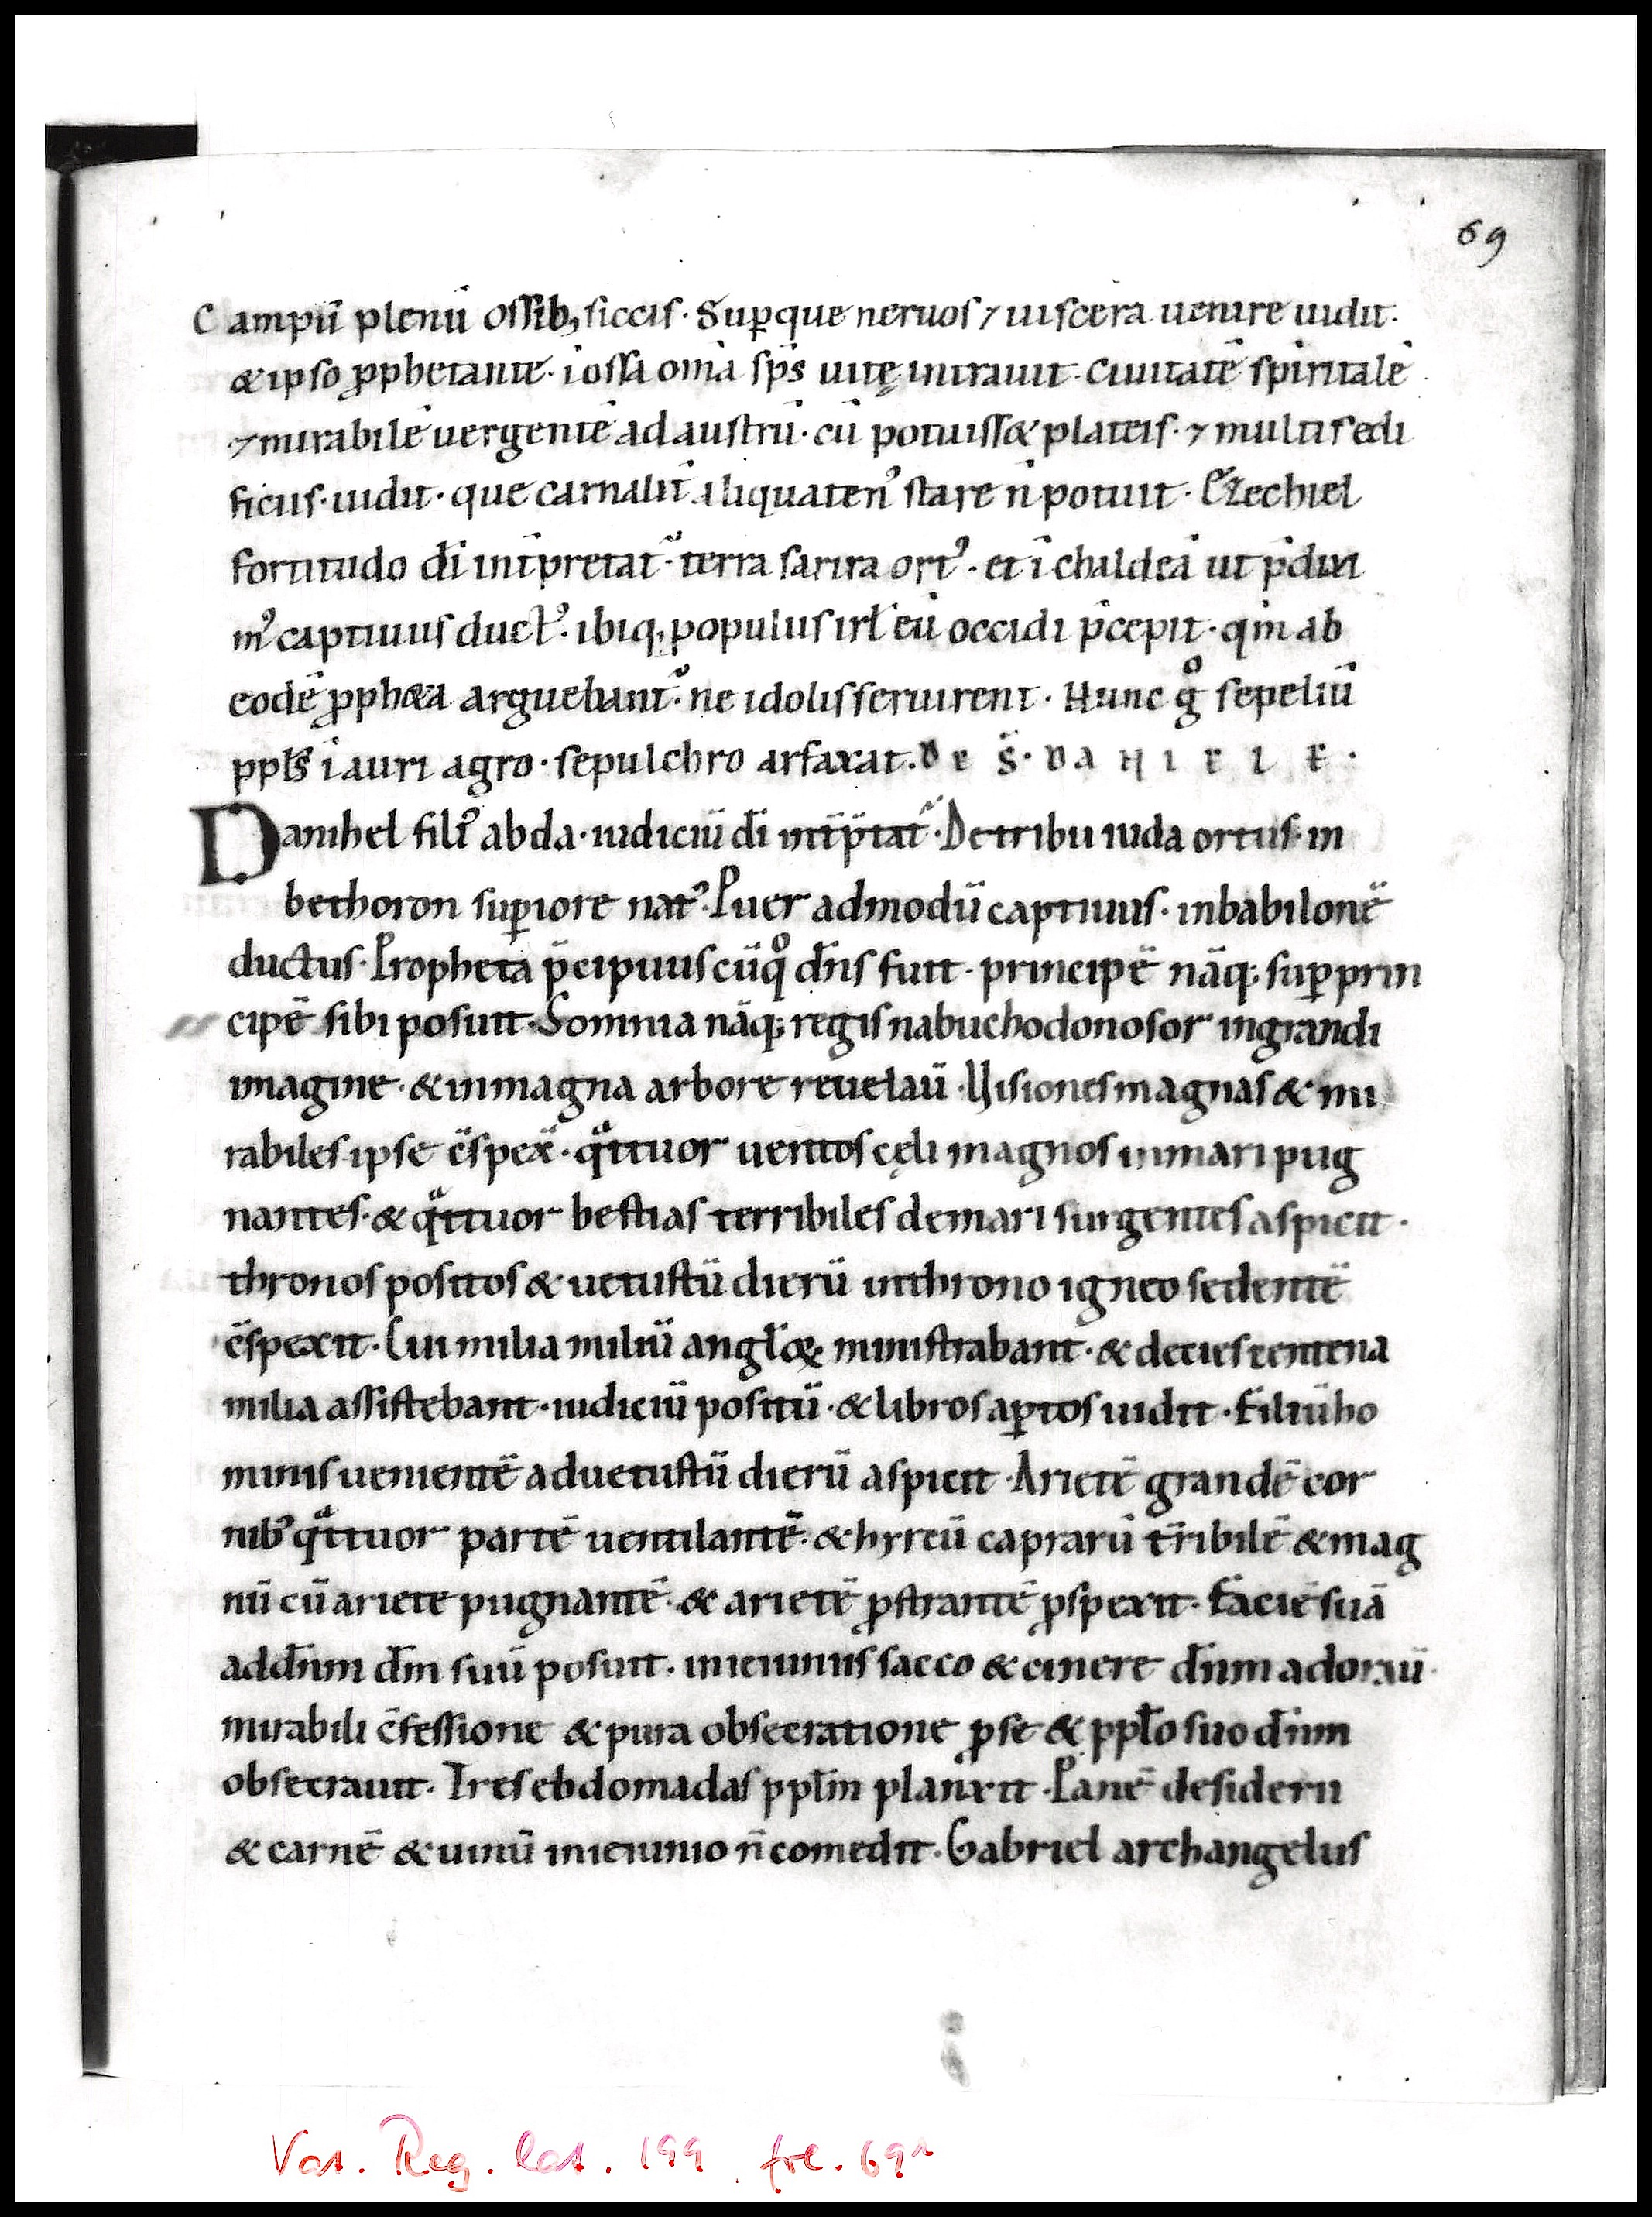 69
Campū plenū ossib; siccis · Sup̲que neruos ⁊ uiscera uenire uidit ·
& ipso ꝓphetante · ī ossa om̄ia sp̄s uitę intrauit · Ciuitatē spiritalē
⁊ mirabilē uergentē ad austrū · cū potuiss& plateis · ⁊ multis edi
ficiis · uidit · que carnalit̄ aliquaten᾿ stare n̄ potuit · Ezechiel
fortitudo dī int̄pretat᷑ · terra sarira ort᾿ · et ī chaldeā ut p̄dixi
m᾿ captiuus duct᾿ · ibiq; populus irl̄ eū occidi p̄cepit · qm̄ ab
eodē ꝓph&a arguebant᷑ · ne idolis seruirent · Hunc gͦ sepeliū
ppl̄s ī auri agro · sepulchro arfaxat · DE S̄ · DANIELE ·
Danihel fili᾿ abda · iudiciū dī int̄p̄tat᷑ · De tribu iuda ortus · in
bethoron sup̲iore nat᾿ · Puer admodū captiuus · in babilonē
ductus · Propheta p̄cipuus cū qͦ dn̄s fuit · principē nāq; sup̲ prin
cipē sibi posuit · Somnia nāq; regis nabuchodonosor in grandi
imagine · & in magna arbore reuelaū · Uisiones magnas & mi
rabiles ipse c̄spex̄ · qͣttuor uentos cęli magnos in mari pug
nantes · & qͣttuor bestias terribiles de mari surgentes aspicit ·
thronos positos & uetustū dierū in throno igneo sedentē
c̄spexit · Cui milia miliū angl̄oꝝ ministrabant · & decies centena
milia assistebant · iudiciū positū · & libros ap̲tos uidit · filiū ho
minis uenientē ad uetustū dierū aspicit · Arietē grandē cor
nib᾿ qͣttuor partē uentilantē · & hyrcū caprarū t̄ribilē & mag
nū cū ariete pugnantē · & arietē ꝓstrantē ꝓspexit · faciē suā
ad dn̄m dm̄ suū posuit · in ieiuniis sacco & cinere dn̄m adoraū ·
mirabili c̄fessione & pura obsecratione ꝓ se & ppl̄o suo dn̄m
obsecrauit · Tres ebdomadas ppl̄m planxit · Panē desiderii
& carnē & uinū in ieiunio n̄ comedit · Gabriel archangelus
Vat. Reg. lat. 199. fol. 69r